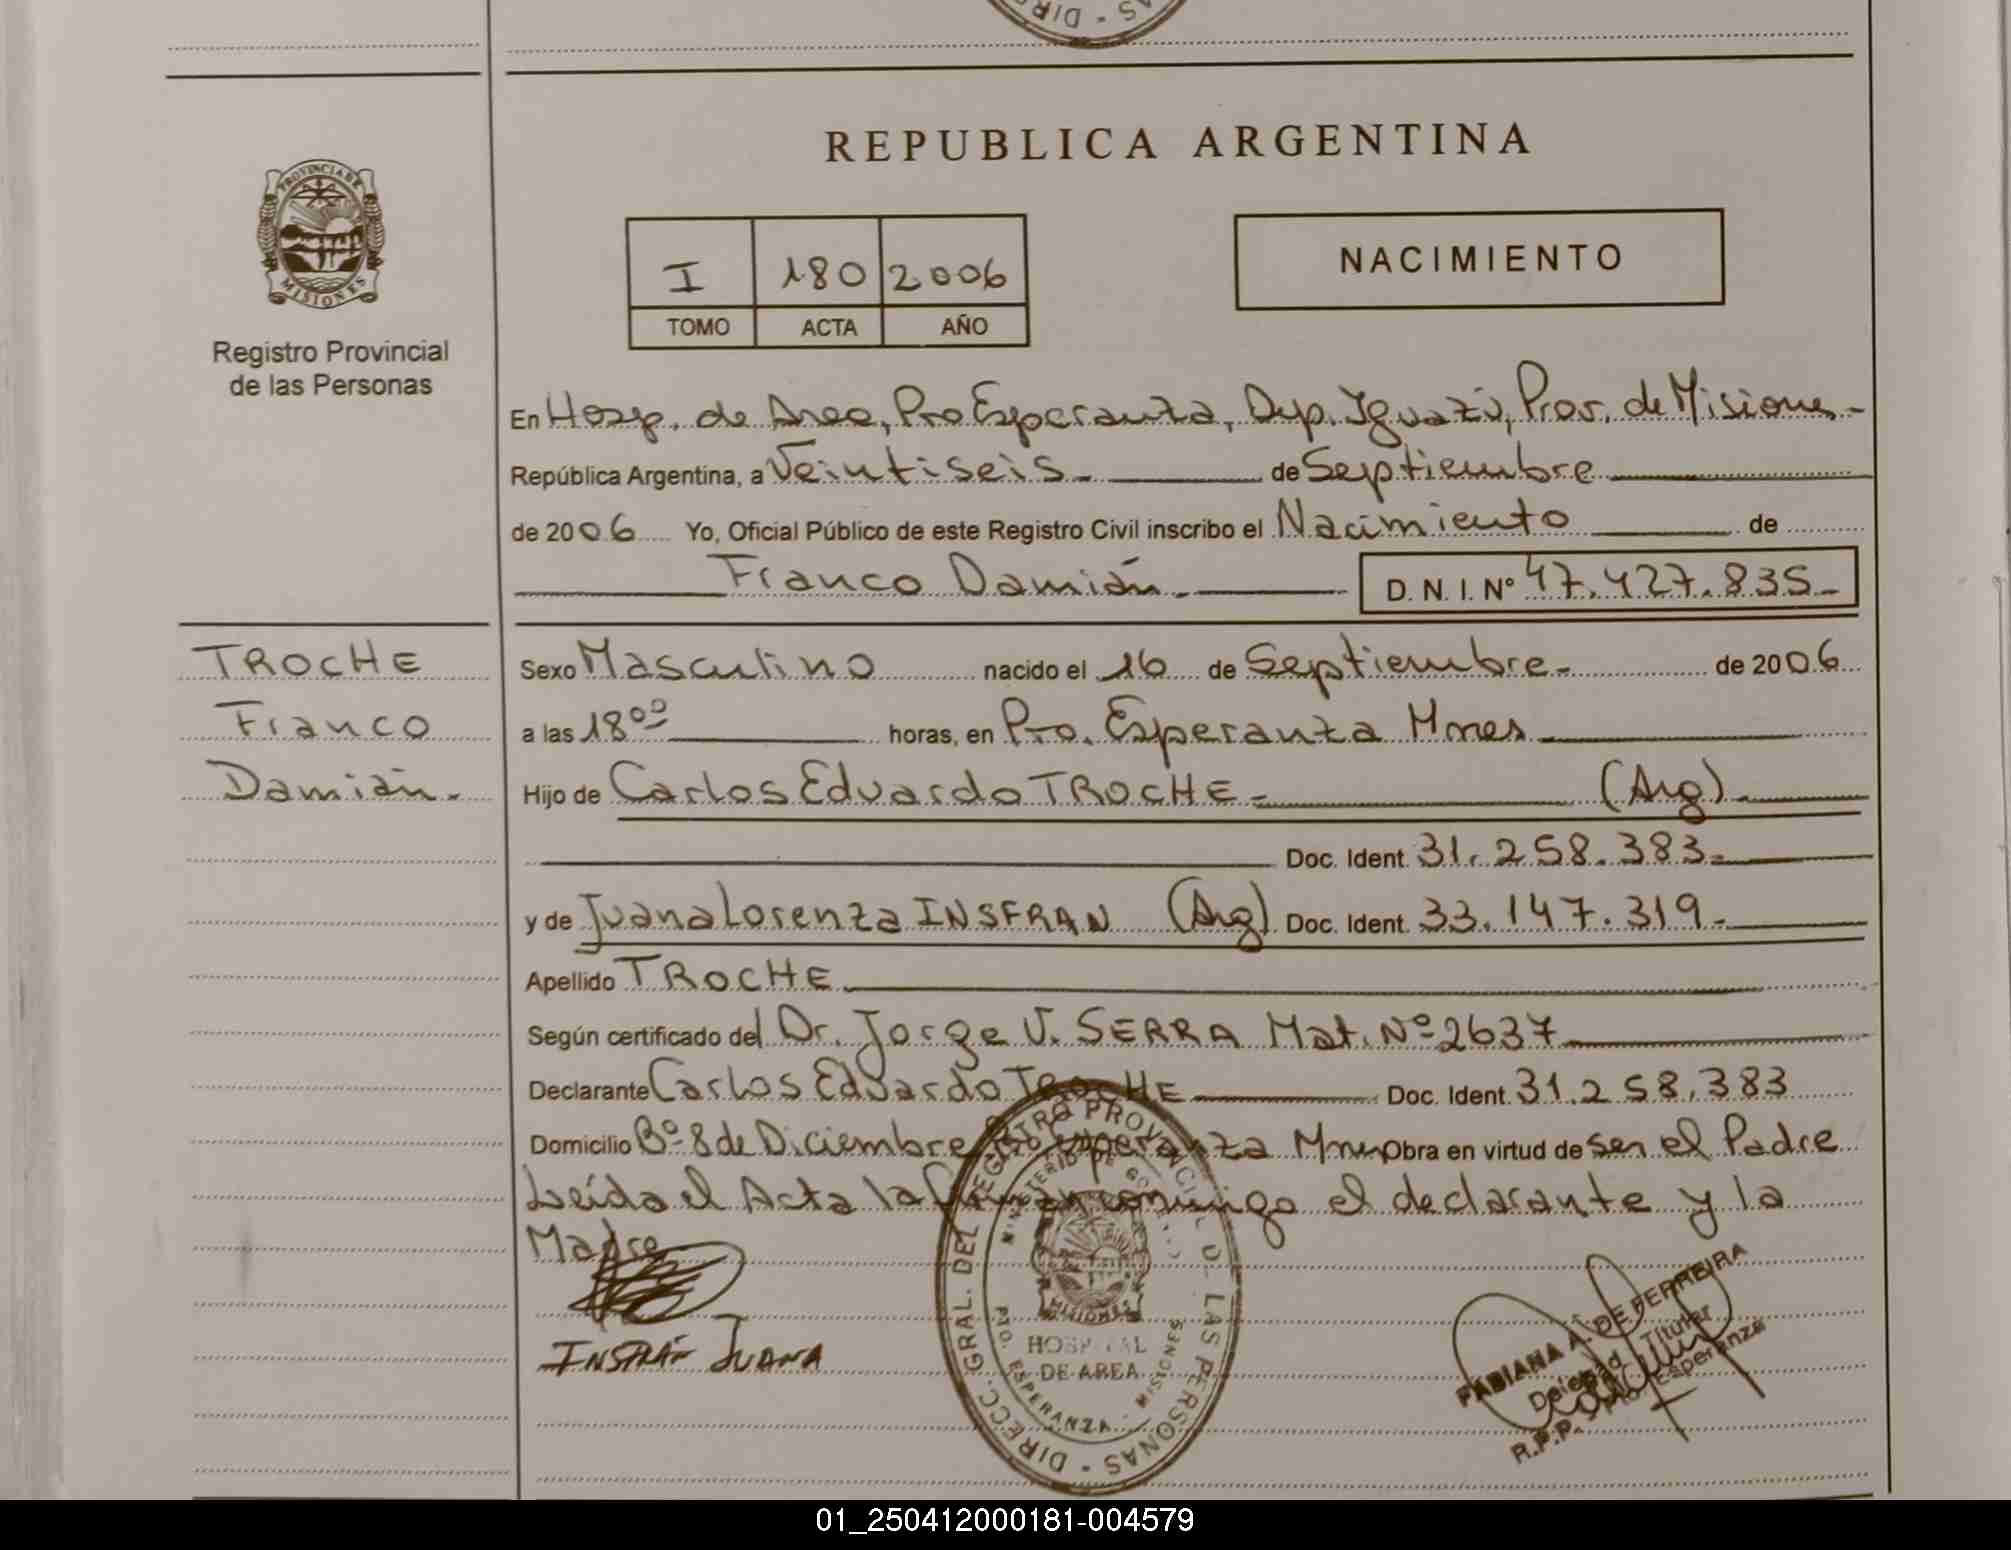 REPUBLICA ARGENTINA
PROVINCIA DE
MISIONES
Registro Provincial
de las Personas
I 180 2006
TOMO ACTA AÑO
NACIMIENTO
En Hosp. de Area, Pto Esperanza, Dep. Iguazú, Prov. de Misiones-
República Argentina, a Veintiseis- de Septiembre
de 2006 Yo, Oficial Público de este Registro Civil inscribo el Nacimiento de
Franco Damián- D. N. I. Nº 47.427.835-
TROCHE
Franco
Damián.-
Sexo Masculino nacido el 16 de Septiembre- de 2006
a las 18⁰⁰ horas, en Pto. Esperanza Mnes
Hijo de Carlos Eduardo TROCHE- (Arg)
Doc. Ident. 31.258.383-
y de Juana Lorenza INSFRAN (Arg) Doc. Ident. 33.147.319-
Apellido TROCHE
Según certificado del Dr. Jorge V. SERRA Mat. Nº 2637
Declarante Carlos Eduardo TROCHE Doc. Ident. 31.258.383
Domicilio Bº 8 de Diciembre Pto Esperanza Mnes Obra en virtud de ser el Padre
Leída el Acta la firman conmigo el declarante y la
Madre
INSFRÁN JUANA
DIRECC. GRAL. DEL REGISTRO PROVINCIAL DE LAS PERSONAS
MINISTERIO DE GO
MISIONES
HOSPITAL
DE AREA
PTO. ESPERANZA - MISIONES
FABIANA A. DE FERREIRA
Delegad Titular
R.P.P. Pto. Esperanza
01_250412000181-004579